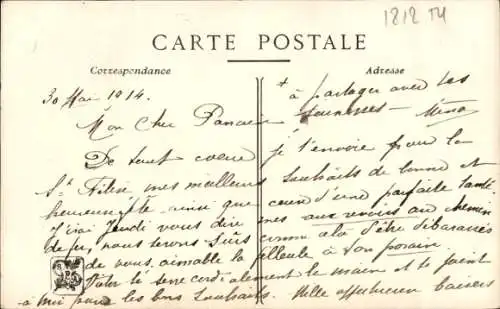 1812 T4
CARTE POSTALE
Correspondance
Adresse
30 Mai 1914.
Mon Cher Parrain
De tout coeur je t'envoie pour la
St mes meilleurs souhaits de bonne et
heureuse fête ainsi que ceux d'une parfaite santé
J'irai Jeudi vous dire mes aux revoirs au chemin
de fer, nous serons sûrs comme d'être débarassés
de vous, aimable filleule à son parain
te serre cordialement la main et se joint
à moi pour les bons souhaits. Mille affectueux baisers
+ à partager avec les
Mina